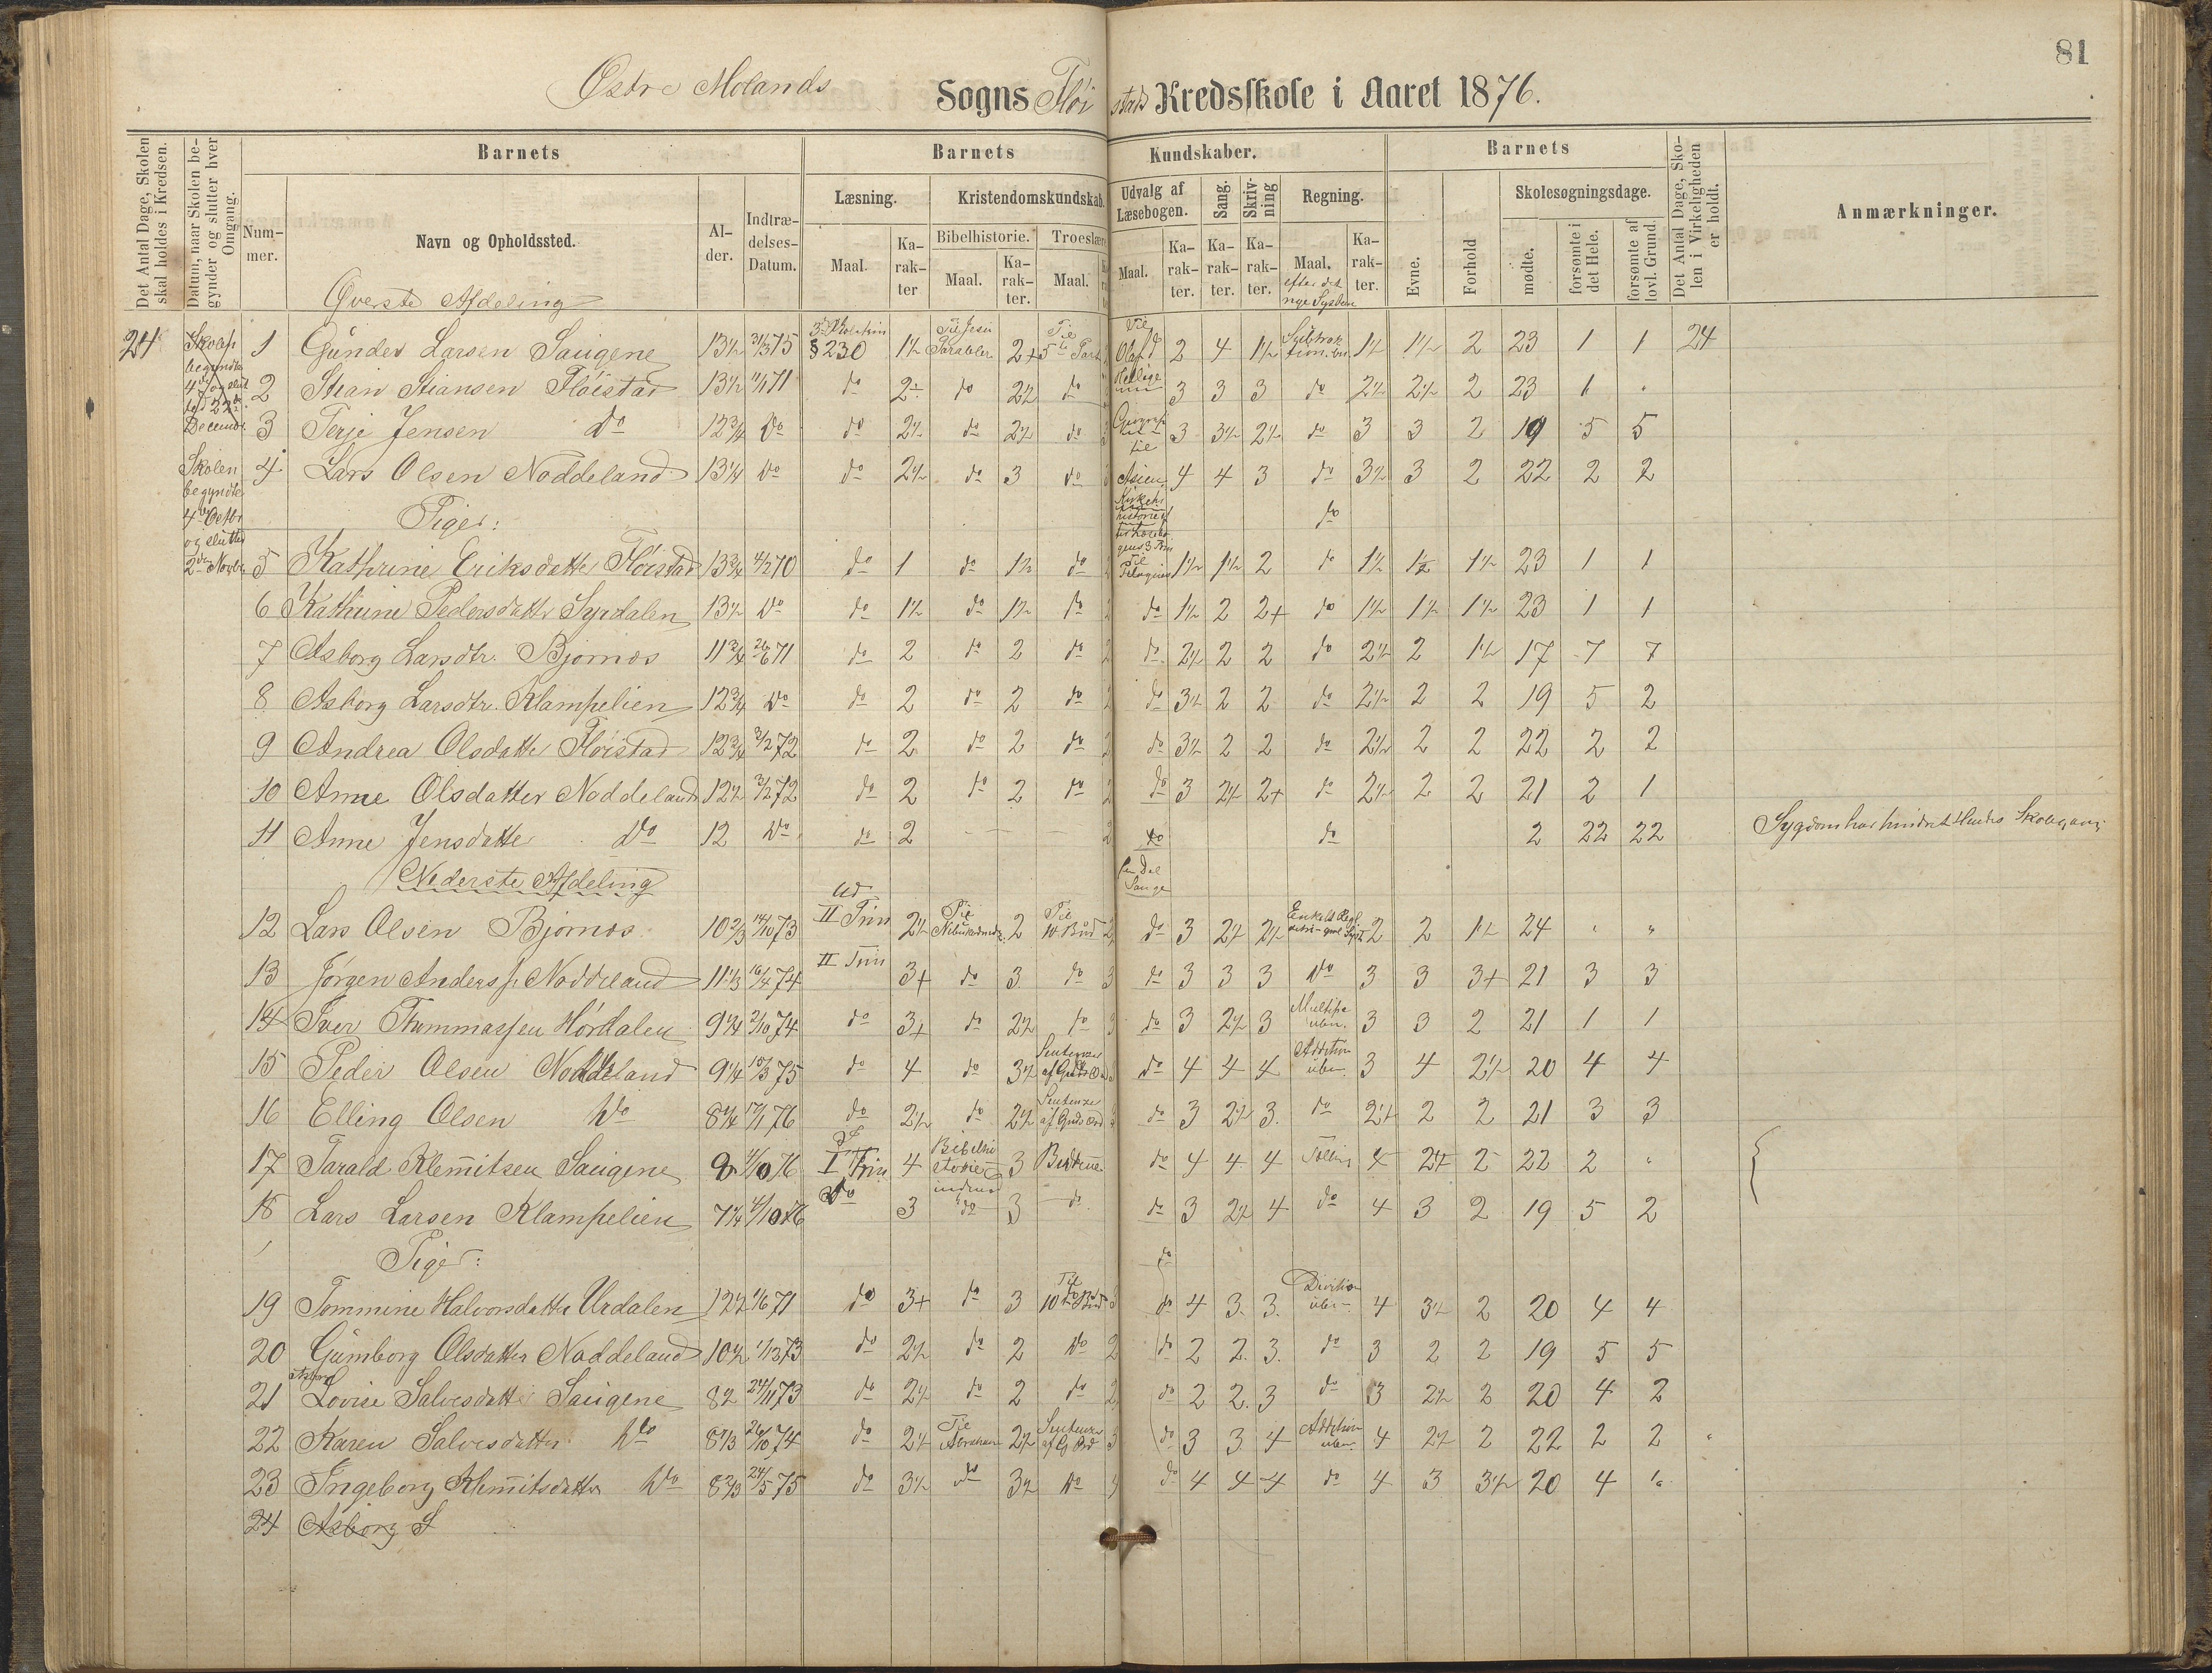 81
Østre Molands Sogns Fløistads Kredsskole i Aaret 1876.
Det Antal Dage, Skolen skal holdes i Kredsen.
Datum, naar Skolen begynder og slutter hver Omgang.
Barnets
Barnets Kundskaber.
Barnets
Det Antal Dage, Skolen i Virkeligheden er holdt.
Anmærkninger.
Nummer.
Navn og Opholdssted.
Alder.
Indtrædelses-Datum.
Læsning.
Kristendomskundskab.
Udvalg af Læsebogen.
Sang.
Skrivning
Regning.
Evne.
Forhold
Skolesøgningsdage.
Maal.
Karakter
Bibelhistorie.
Troeslære
Maal.
Karakter.
Maal.
Maal.
Karakter.
Karakter.
Karakter.
Maal. efter det nye System
Karakter.
mødte.
forsømte i det Hele.
forsømte af lovl. Grund
Øverste Afdeling
24
Skolen begyndte 4de Octbr og sluttet 2den Novbr.
1 Gunder Larsen Saugene 13½ 31/3 75 § 230 1½ Parabler 2+ 2 4 1½ 1½ 1½ 2 23 1 1 24
2 Stian Stiansen Fløistad 13½ 11/1 71 do 2÷ do 2½ do 3 3 3 do 2½ 2½ 2 23 1 "
3 Terje Jensen do 12¾ do do 2½ do 2½ do 3 3½ 2½ do 3 3 2 19 5 5
4 Lars Olsen Noddeland 13¼ do do 2½ do 3 do til Asien 4 4 3 do 3½ 3 2 22 2 2
Piger:
do
5 Kathrine Eriksdatter Fløistad 13¾ 4/2 70 do 1 do 1½ do 1½ 1½ 2 do 1½ 1½ 1½ 23 1 1
6 Kathrine Pedersdatter Syrdalen 13½ do do 1½ do 1½ do do 1½ 2 2+ do 1½ 1½ 1½ 23 1 1
7 Asborg Larsdtr. Bjornos 11¾ 26/6 71 do 2 do 2 do do 2½ 2 2 do 2½ 2 1½ 17 7 7
8 Asborg Larsdtr. Klampelien 12¾ do do 2 do 2 do do 3½ 2 2 do 2½ 2 2 19 5 2
9 Andrea Olsdatter Fløistad 12¾ 3/2 72 do 2 do 2 do do 3½ 2 2 do 2½ 2 2 22 2 2
10 Anne Olsdatter Noddeland 12½ 3/2 72 do 2 do 2 do do 3 2½ 2+ do 2½ 2 2 21 2 1
11 Anne Jensdatter do 12 do do 2 — — — 2 do do 2 22 22 Sygdom har hindret Hendes Skolegang
Nederste Afdeling
en Del Sange
12 Lars Olsen Bjornos 10⅔ 14/10 73 II Trin 2½ Til 2 Til 10 Bud do 3 2½ 2½ 2 2 1½ 24 " "
13 Jørgen Anderss. Noddeland 11⅓ 16/4 74 II Trin 3+ do 3 do 3 do 3 3 3 do 3 3 3+ 21 3 3
14 Iver Thommassen Hørdalen 9¼ 2/10 74 do 3+ do 2½ do 3 do 3 2½ 3 3 3 2 21 1 1
15 Peder Olsen Noddeland 9¼ 15/3 75 do 4 do 3½ Sentenzer af Guds Ord do 4 4 4 Addition 3 4 2½ 20 4 4
16 Elling Olsen do 8¼ 17/1 76 do 2½ do 2½ Sentenzer af Guds Ord do 3 2½ 3. do 2½ 2 2 21 3 3
17 Tarald Klemitsen Saugene 8 4/10 76 I Trin 4 Bibelhistorie 3 do 4 4 4 4 2½ 2 22 2 "
18 Lars Larsen Klampelien 7¼ 4/10 76 do 3 do 3 do do 3 2½ 4 do 4 3 2 19 5 2
Piger:
do
19 Tommine Halvorsdatter Urdalen 12½ 1/6 71 do 3+ do 3 Til 10de Bud 3 do 4 3. 3. Division 4 3½ 2 20 4 4
20 Gumborg Olsdatter Noddeland 10½ 1/13 73 do 2½ do 2 do 2 do 2 2. 3. do 3 2 2 19 5 5
21 Lovise Salvesdatter Saugene 8½ 24/11 73 do 2½ do 2 do 2 do 2 2. 3 do 3 2½ 2 20 4 2
22 Karen Salvesdatter do 8⅓ 26/10 74 do 2½ Til Abraham 2½ Sentenzer af G Ord 3 do 3 3 4 Addition 4 2½ 2 22 2 2
23 Ingeborg Klemitsdatter do 8⅔ 24/5 75 do 3½ do 3½ do do 4 4 4 do 4 3 3½ 20 4 "
24 Asborg S